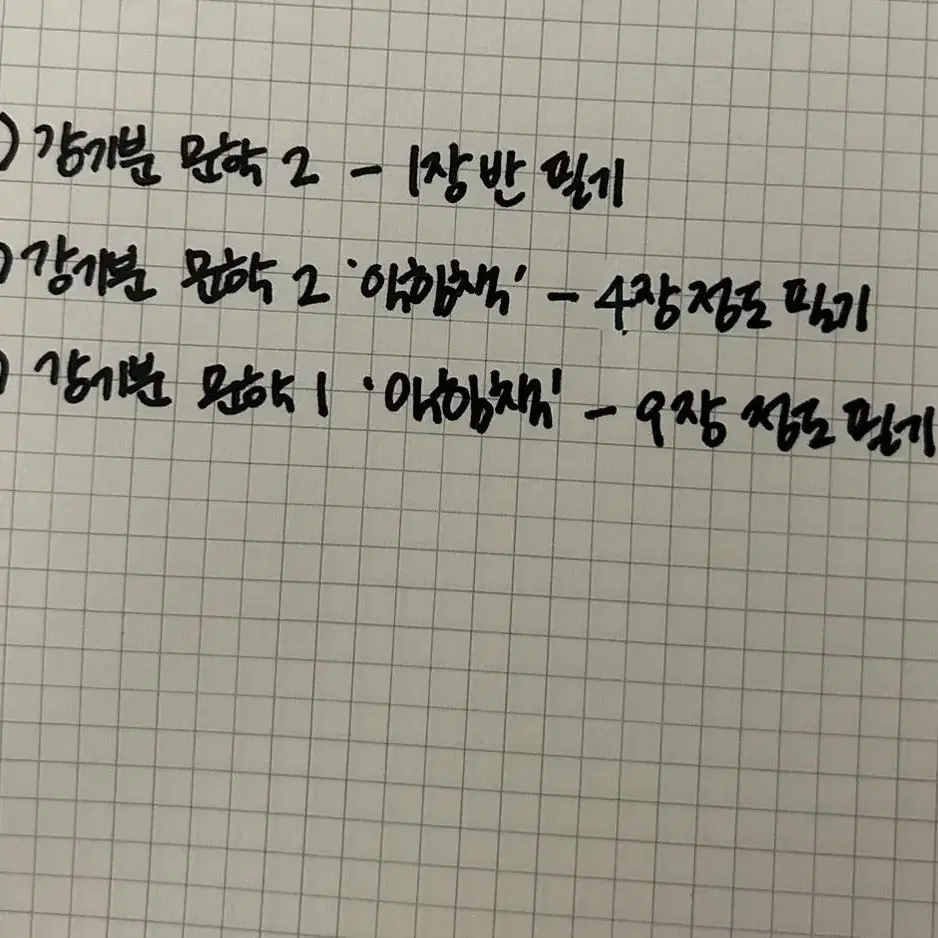 ) 강기분 문학 2 - 1장 반 필기
) 강기분 문학 2 '익힘책' - 4장 정도 필기
) 강기분 문학 1 '익힘책' - 9장 정도 필기